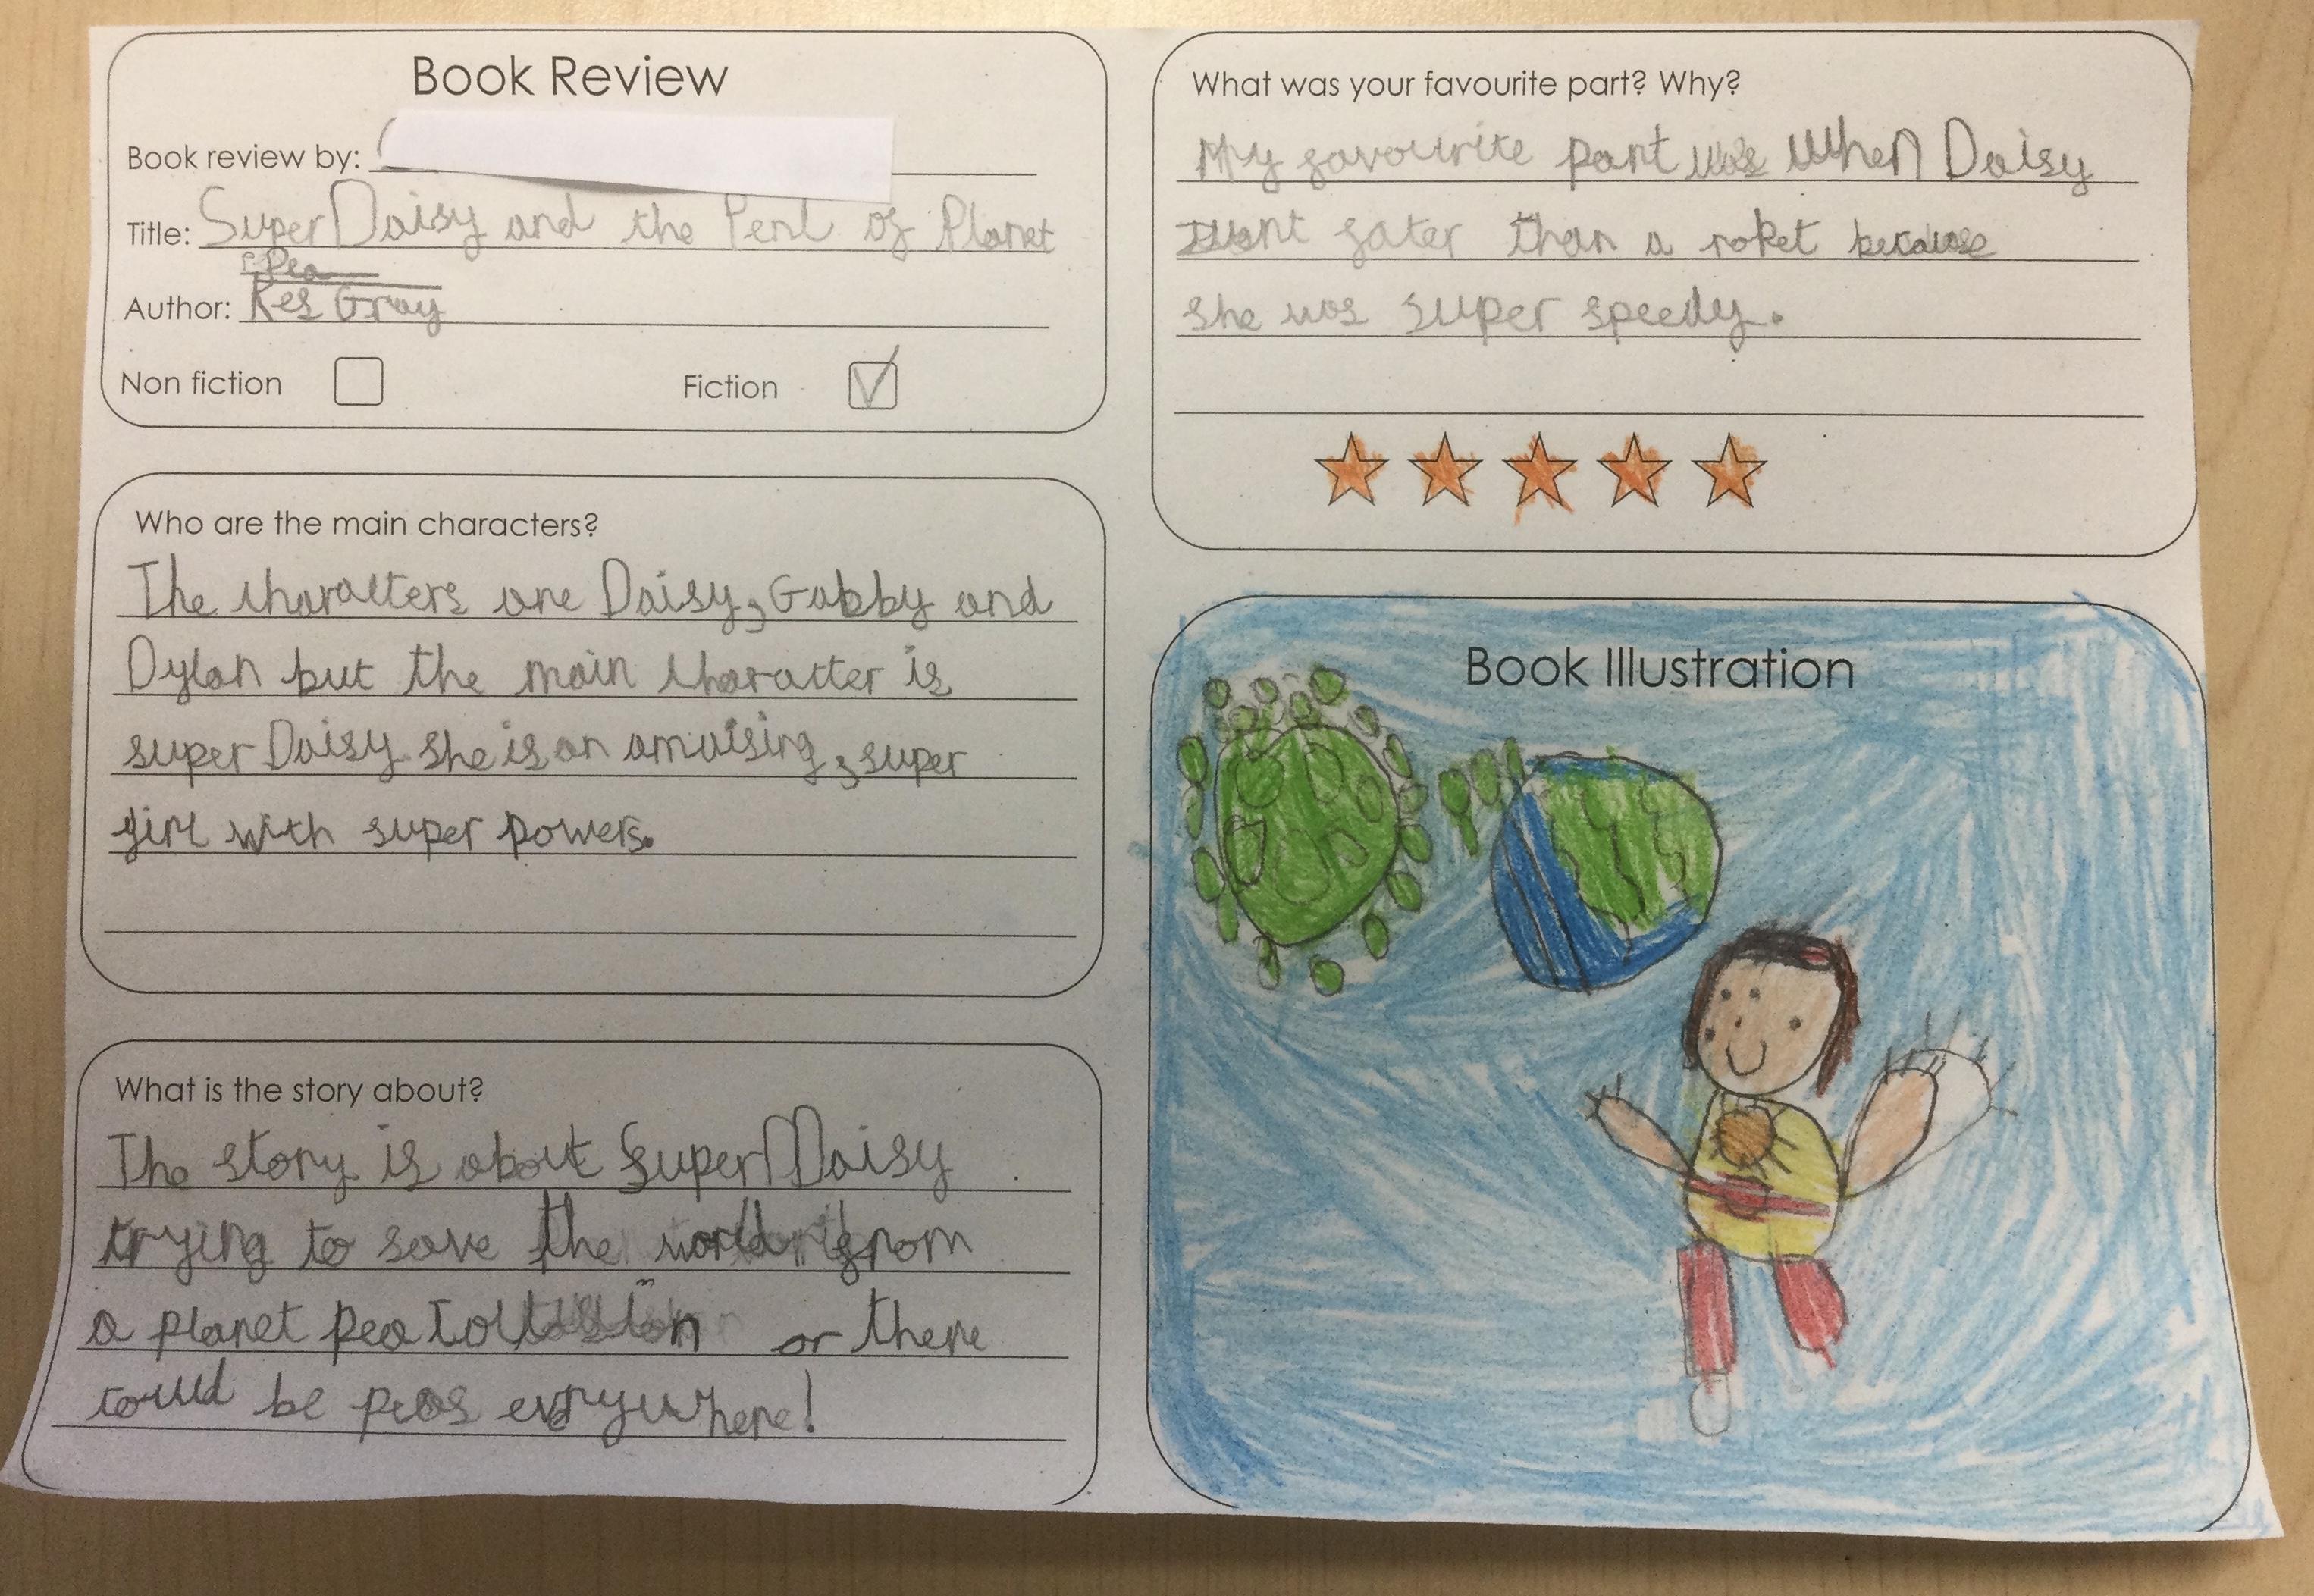 Book Review
Book review by:
Title: Super Daisy and the Peril of Planet
Pea
Author: Kes Gray
Non fiction
Fiction
Who are the main characters?
The characters are Daisy, Gabby and
Dylan but the main character is
super Daisy she is an amaising, super
girl with super powers.
What is the story about?
The story is about Super Daisy
trying to save the world from
a planet pea or there
could be peas evrywhere!
What was your favourite part? Why?
My favourite part was When Daisy
went fater than a roket because
she was super speedy.
Book Illustration